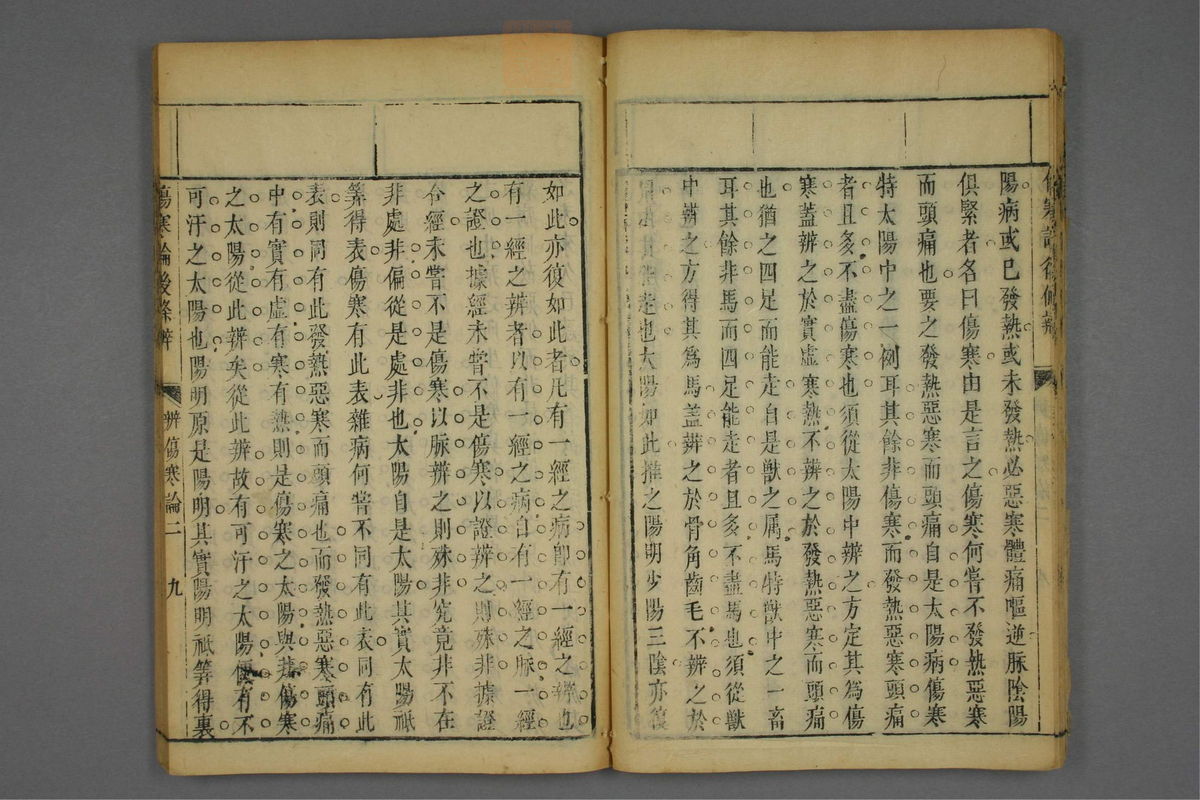 傷寒論後條辨
陽病或已發熱或未發熱必惡寒體痛嘔逆脈陰陽
俱緊者名曰傷寒由是言之傷寒何嘗不發熱惡寒
而頭痛也要之發熱惡寒而頭痛自是太陽病傷寒
特太陽中之一例耳其餘非傷寒而發熱惡寒頭痛
者且多不盡傷寒也須從太陽中辨之方定其為傷
寒蓋辨之於實虛寒熱不辨之於發熱惡寒而頭痛
也猶之四足而能走自是獸之属馬特獸中之一畜
耳其餘非馬而四足能走者且多不盡馬也須從獸
中辨之方得其為馬蓋辨之於骨角齒毛不辨之於
走也太陽如此推之陽明少陽三陰亦復
如此亦復如此者凡有一經之病即有一經之辨也
有一經之辨者以有一經之病自有一經之脈一經
之證也據經未嘗不是傷寒以證辨之則殊非據證
今經未嘗不是傷寒以脈辨之則殊非究竟非不在
非處非偏從是處非也太陽自是太陽其實太陽祇
筭得表傷寒有此表雜病何嘗不同有此表同有此
表則同有此發熱惡寒而頭痛也而發熱惡寒頭痛
中有實有虛有寒有熱則是傷寒之太陽與非傷寒
之太陽從此辨矣從此辨故有可汗之太陽便有不
可汗之太陽也陽明原是陽明其實陽明祇筭得裏
傷寒論後條辨 辨傷寒論二 九